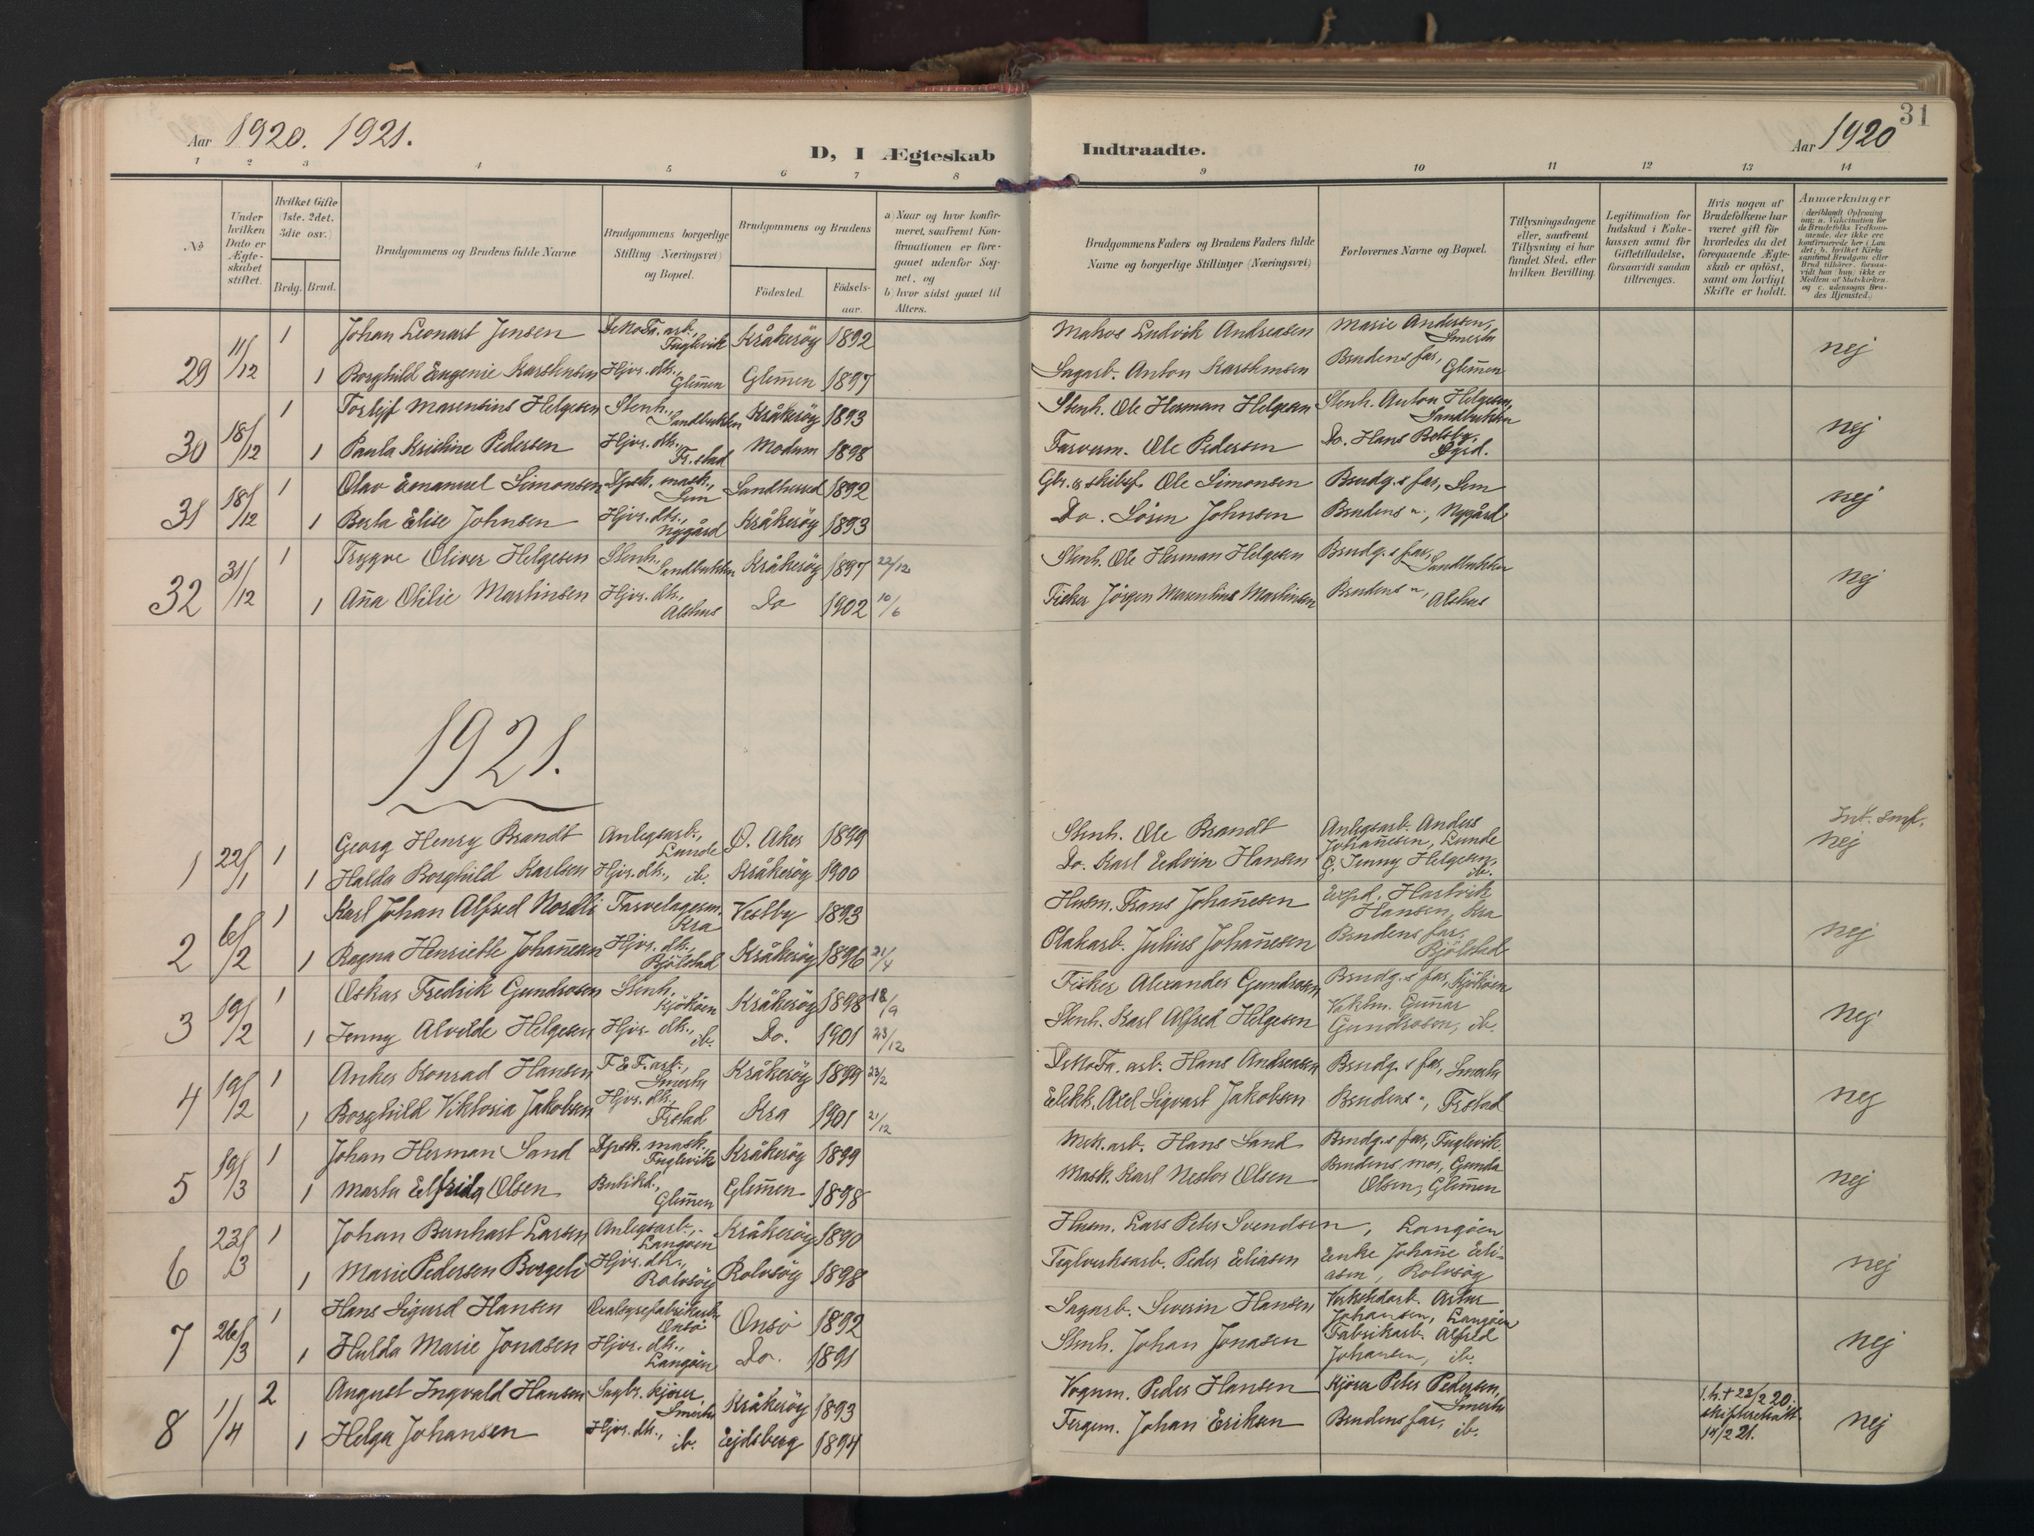 31
Aar 1920. 1921.
D, I Ægteskab Indtraadte.
Aar 1920
1 2 3 4 5 6 7 8 9 10 11 12 13 14
№
Under hvilken Dato er Ægteskabet stiftet.
Hvilket Gifte (1ste. 2det. 3die osv.)
Brdg. Brud.
Brudgommens og Brudens fulde Navne
Brudgommens borgerlige Stilling (Næringsvei) og Bopæl.
Brudgommens og Brudens
Födested.
Födselsaar.
a) Naar og hvor konfirmeret, saafremt Konfirmationen er foregaaet udenfor Sognet, og
b) hvor sidst gaaet til Alters.
Brudgommens Faders og Brudens Faders fulde Navne og borgerlige Stillinger (Næringsvei)
Forlovernes Navne og Bopæl.
Tillysningsdagene eller, saafremt Tillysning ei har fundet Sted, efter hvilken Bevilling.
Legitimation for Indskud i Enkekassen samt for Giftetilladelse, forsaavidt saadan tiltrænges.
Hvis nogen af Brudefolkene har været gift før hvorledes da det foregaaende Ægteskab er oplöst, samt om lovligt Skifte er holdt.
Anmærkninger
29 11/12 1 Johan Leonart Jensen De No Fa. arb., Fuglevik Kråkeröy 1892 Matros Ludvik Andreasen Marie Andersen, Smerta nej
1 Borghild Eugenie Karstensen Hjvr. dtr., Glem̄en Glem̄en 1897 Sagarb. Anton Karstensen Brudens far, Glem̄en
30 18/12 1 Torleif Marensius Helgesen Stenh., Sandbukken Kråkeröy 1893 Stenh. Ole Herman Helgesen Stenh. Anton Helgesen, Sandbukken nej
1 Paula Kristine Pedersen Hjvr. dtr., Fr.stad Modum 1898 Farverm. Ole Pedersen Do. Hans Bolsby,
31 18/12 1 Olav Emanuel Simonsen Spek. mask., Lem Sandherred 1892 Gbr. & skibsf. Ole Simonsen Brudg.s far, Lem nej
1 Berta Elise Johnsen Hjvr. dtr., Nygård Kråkeröy 1893 Do. Sören Johnsen Brudens ", Nygård
32 31/12 1 Trygve Oliver Helgesen Stenh., Sandbukken Kråkeröy 1897 22/12 Stenh. Ole Herman Helgesen Brudg.s far, Sandbukken nej
1 An̄a Otilie Martinsen Hjvr. dtr., Alshus Do 1902 10/6 Fisker Jörgen Marentius Martinsen Brudens ", Alshus
1921.
Int. smf.
1 22/1 1 Georg Henry Brandt Anlegsarb., Lunde Ö. Aker 1899 Stenh. Ole Brandt Anlegsarb. Anders Johan̄esen, Lunde nej
1 Halda Borghild Karlsen Hjvr. dtr., ib. Kråkeröy 1900 Do. Karl Edvin Hansen G. Jenny Helgesen, ib.
2 6/2 1 Karl Johan Alfred Nordli Farvelagerm. Kra Vestby 1893 Husm. Frans Johan̄esen Exped. Hartvik Hansen, Kra nej
1 Ragna Henriette Johan̄esen Hjvr. dtr., Bjölstad Kråkeröy 1896 21/4 Plakarb. Julius Johan̄esen Brudens far, Bjölstad
3 19/2 1 Oskar Fredrik Gundrosen Stenh., Kjököen Kråkeröy 1898 18/9 Fisker Alexander Gundrosen Brudg.s far, Kjököen nej
1 Jenny Alvilde Helgesen Hjvr. dtr., ib. Do. 1901 23/12 Stenh. Karl Alfred Helgesen Vaktm. Gun̄ar Gundrosen, ib.
4 19/2 1 Anker Konrad Hansen F. & F. arb., Smerta Kråkeröy 1899 23/2 De No Fa. arb. Hans Andreasen Brudg.s far, Smerta nej
1 Borghild Viktoria Jakobsen Hjvr. dtr., Frstad Kra 1901 21/12 Elekk. Axel Sigvart Jakobsen Brudens ", Frstad
5 19/3 1 Johan Herman Sand Spek. mask. Fuglevik Kråkeröy 1899 Mek. arb. Hans Sand Brudg.s far, Fuglevik nej
1 Marta Elfrida Olsen Butikd., Glem̄en Glem̄en 1898 Mask. Karl Nestor Olsen Brudens mor, Gunda Olsen, Glem̄en
6 23/3 1 Johan Bernhart Larsen Anlegsarb., Langöen Kråkeröy 1890 Husm. Lars Peter Svendsen, Langöen nej
1 Marie Pedersen Borgeli Hjvr. dtr., Rolvsöy Rolvsöy 1898 Teglverksarb. Peder Eliasen Enke Johan̄e Eliasen, Rolvsöy
7 26/3 1 Hans Sigurd Hansen Oxalsyrefabrikarb. Onsö Onsö 1892 Sagarb. Severin Hansen Verkstedarb. Artur Johansen, Langöen nej
1 Hulda Marie Jonasen Hjvr. dtr., Langöen Do. 1891 Stenh. Johan Jonasen Fabrikarb. Alfred Johansen, ib.
8 1/4 2 August Ingvald Hansen Sagbr. kjörer, Smerta Kråkeröy 1893 Vognm. Peder Hansen Kjörer Peter Pedersen, Smerta 1. h. † 22/2 20. skifteretsatt. 14/2 21. nej
1 Helga Johansen Hjvr. dtr., ib. Ejdsberg 1894 Fergem. Johan Eriksen Brudens far, ib.